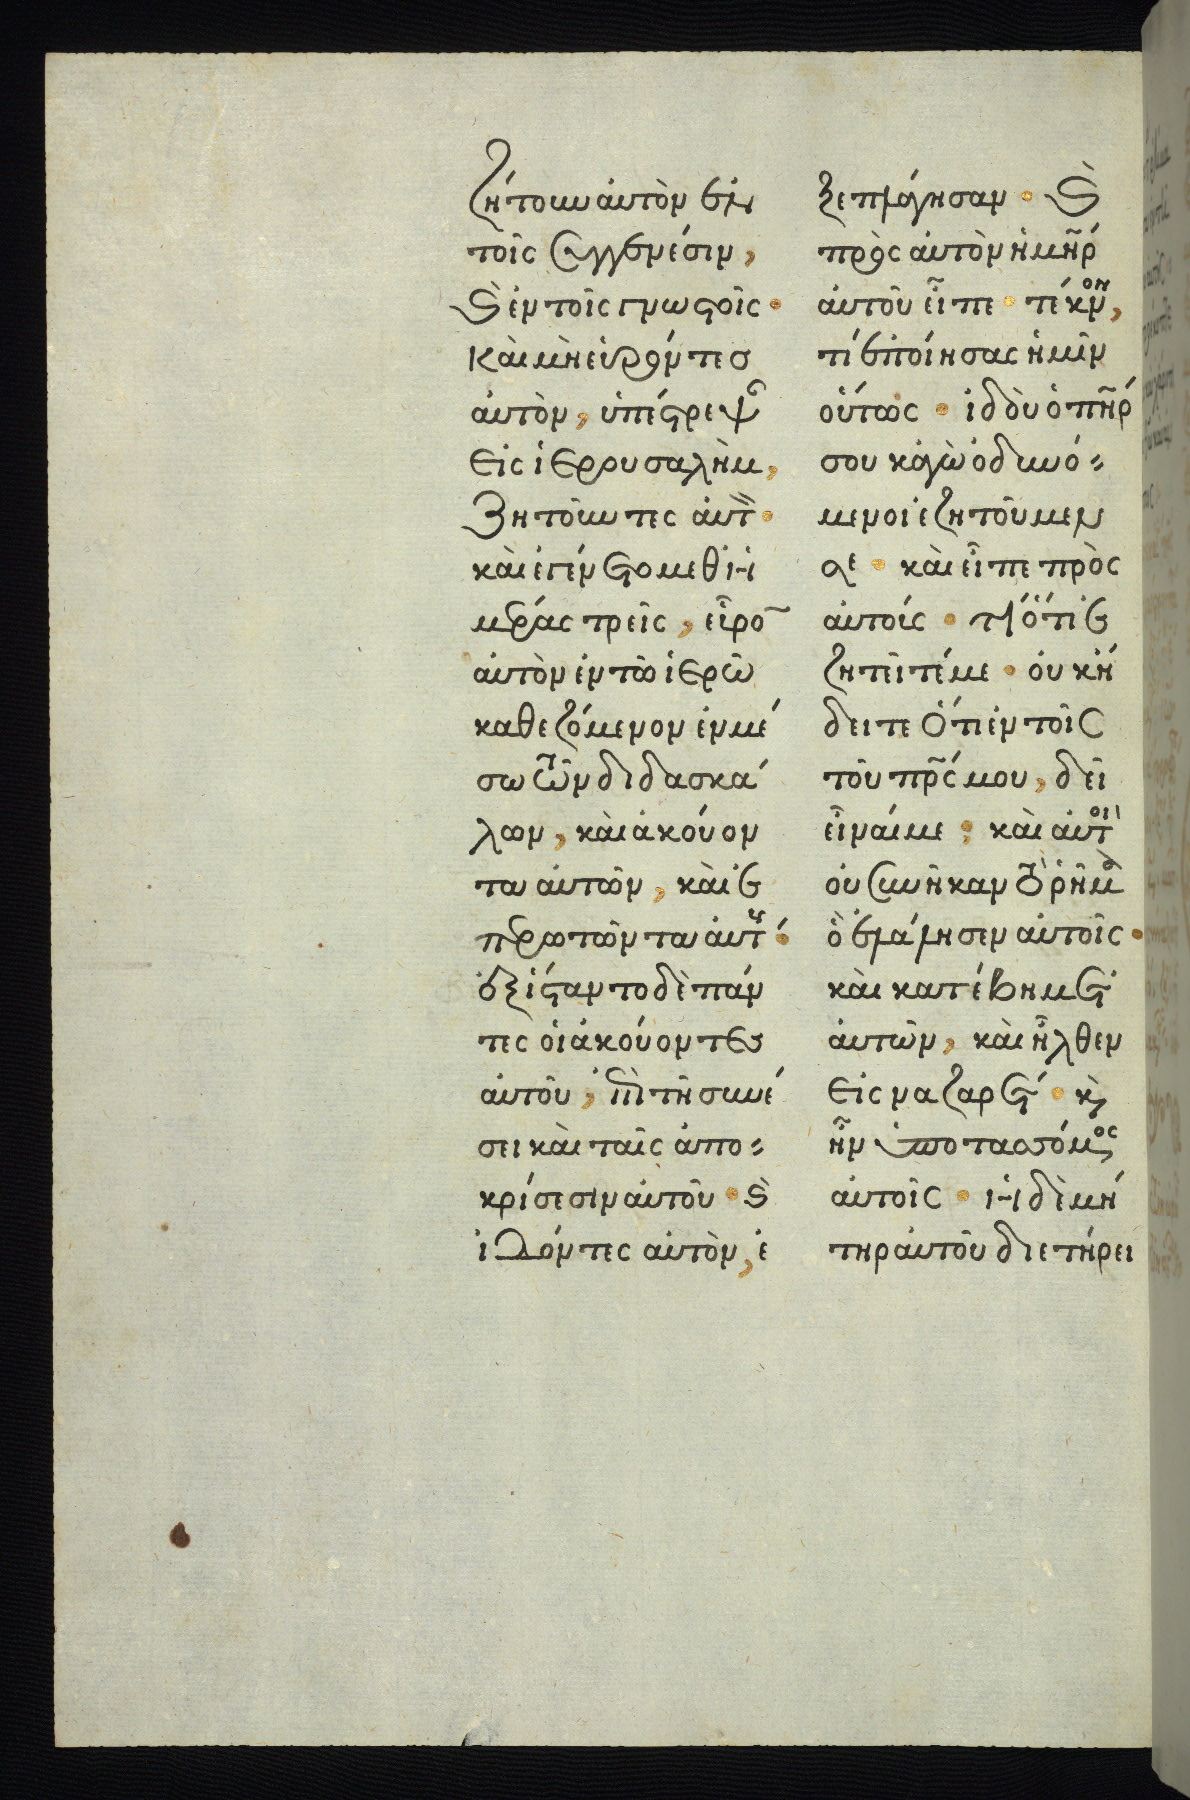 ζήτουν αὐτὸν ἐν
τοῖς συγγενέσιν,
καὶ ἐν τοῖς γνωστοῖς·
καὶ μὴ εὑρόντες
αὐτὸν, ὑπέστρεψ
εἰς ἱερουσαλὴμ,
ζητοῦντες αὐτ·
καὶ ἐγένετο μεθ' ἡ
μέρας τρεῖς, εὗρο
αὐτὸν ἐν τῶ ἱερῶ
καθεζόμενον ἐν μέ
σω τῶν διδασκά
λων, καὶ ἀκούον
τα αὐτῶν, καὶ ἐ
περωτῶντα αὐτούς·
ἐξίσταντο δὲ πάν
τες οἱ ἀκούοντες
αὐτοῦ, ἐπὶ τῆ συνέ
σει καὶ ταῖς ἀπο=
κρίσεσιν αὐτοῦ· καὶ
ἰδόντες αὐτὸν, ἐ
ξεπλάγησαν· καὶ
πρὸς αὐτὸν ἡ μῆρ
αὐτοῦ εἶπε· τέκνον,
τί ἐποίησας ἡμῖν
οὕτως· ἰδοὺ ὁ πῆρ
σου κἀγὼ ὀδυνό=
μενοι ἐζητοῦμεν
σε· καὶ εἶπε πρὸς
αὐτοίς· τί ὅτι ἐ
ζητεῖτέ με· οὐκ ἤ
δειτε ὅτι ἐν τοῖς
τοῦ πρς μου, δεῖ
εἶναί με; καὶ αὐτοὶ
οὐ συνῆκαν τὸ ῥῆμα
ὃ ἐλάλησεν αὐτοῖς·
καὶ κατέβη μετ'
αὐτῶν, καὶ ἦλθεν
εἰς ναζαρέτ· καὶ
ἦν ὑποτασσόμενος
αὐτοῖς· ἡ δὲ μή
τηρ αὐτοῦ διετήρει